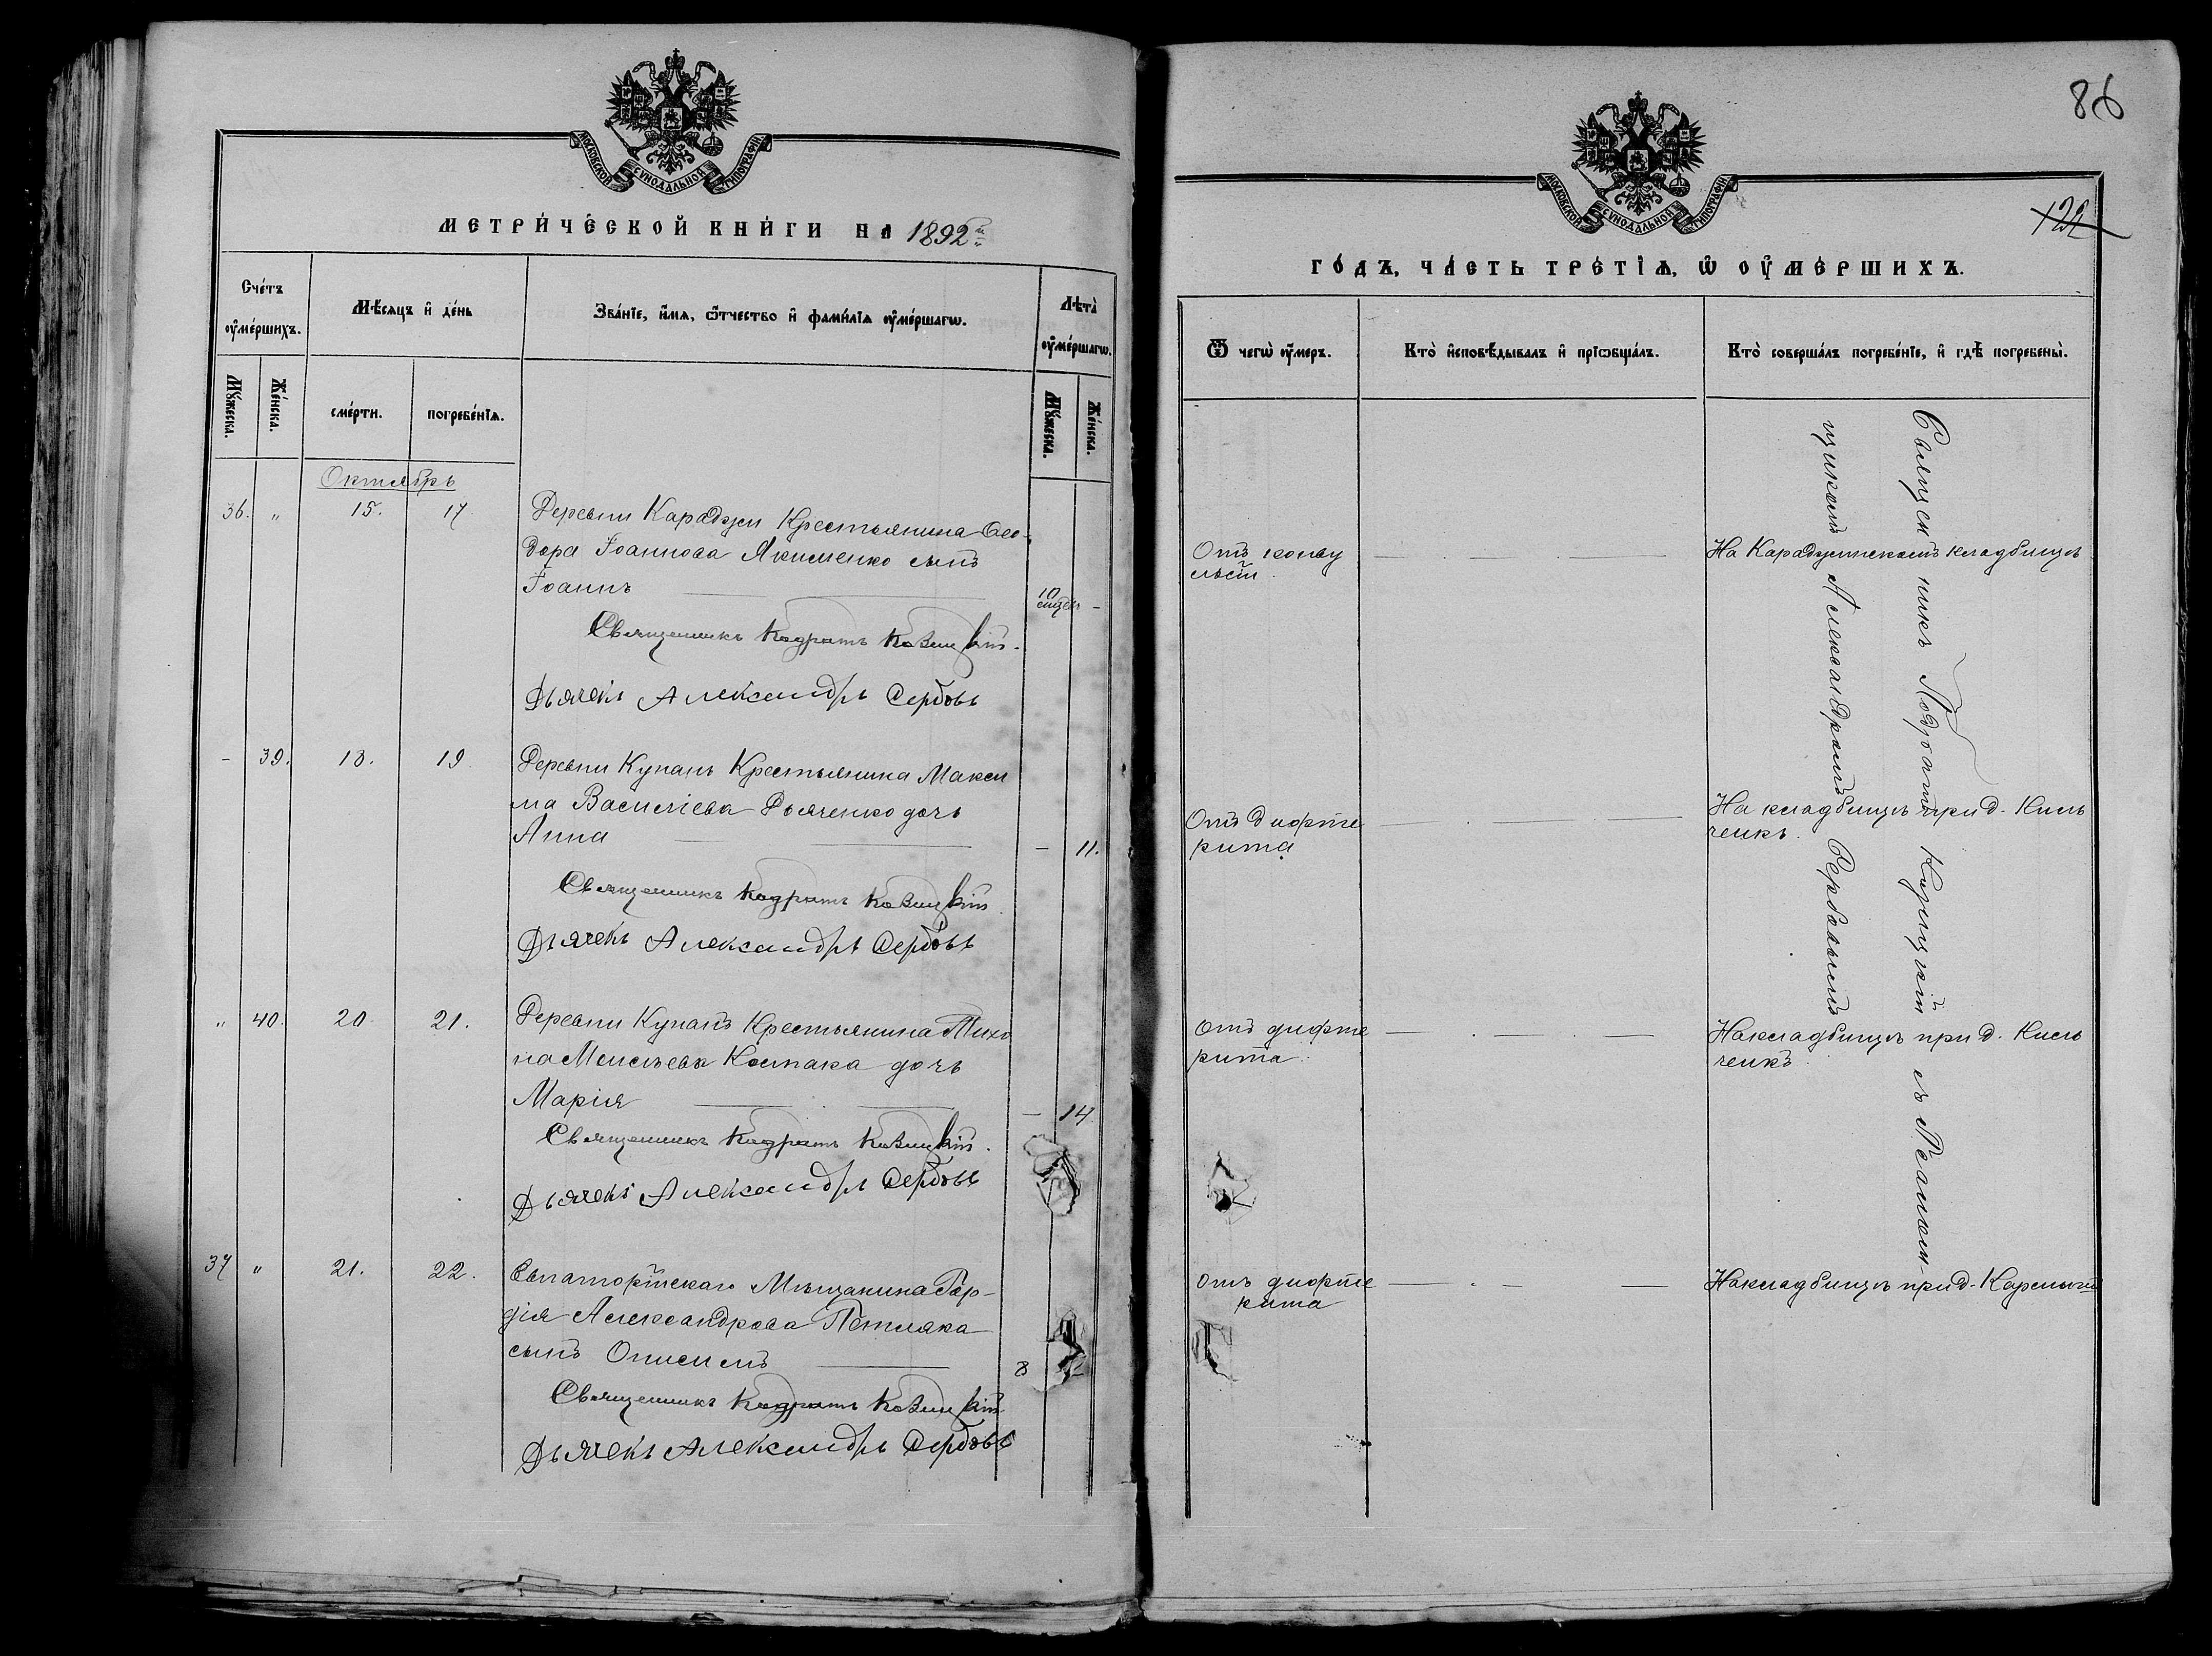 МОСКОВСКОЙ СУНОДАЛЬНОЙ ТИПОГРАФІИ.
МЕТРИ́ЧЕСКОЙ КНИ́ГИ НА 1892й
Сче́тъ ᲂу҆ме́ршихъ.
Мѣ́сяцъ и҆ де́нь
Зва́нїе, и҆́мѧ, ѻ҆́тчество и҆ фами́лїѧ ᲂу҆ме́ршагѡ.
Лѣта̀ ᲂу҆ме́ршагѡ.
Мꙋ́жеска.
Же́нска.
сме́рти.
погребе́нїѧ.
Мꙋ́жеска.
Же́нска.
Октябрь
36. „ 15. 17. Деревни Караджи Крестьянина Ѳео-
дора Іоаннова Якименко сынъ
Іоаннъ 10 -
Священникъ Кодратъ Козицкій.
Дьячекъ Александръ Сербовъ
- 39. 18. 19. Деревни Кунанъ Крестьянина Макси
ма Василіева Дьяченко дочь
Анна - 11.
Священникъ Кодратъ Козицкій.
Дьячекъ Александръ Сербовъ
„ 40. 20. 21. Деревни Кунанъ Крестьянина Тихо
на Моисѣева Костака дочь
Марія - 14
Священникъ Кодратъ Козицкій.
Дьячекъ Александръ Сербовъ
37 „ 21. 22. Евпаторійскаго Мѣщанина Гор-
дія Александрова Петляка
сынъ Онисимъ 8
Священникъ Кодратъ Козицкій
Дьячекъ Александръ Сербовъ
86
122
МОСКОВСКОЙ СУНОДАЛЬНОЙ ТИПОГРАФІИ.
ГО́ДЪ, ЧА́СТЬ ТРЕ́ТЇѦ, Ѡ҆ ОУ҆МЕ́РШИХЪ.
Ѿ чегѡ̀ ᲂу҆́меръ.
Кто̀ и҆сповѣ́дывалъ и҆ прїѡбща́лъ.
Кто̀ соверша́лъ погребе́нїе, и҆ гдѣ̀ погребены̀.
Отъ конву
льсій.
На Караджинскомъ кладбищѣ
Отъ дифте
рита
На кладбищѣ при д. Кель
чекъ.
Отъ дифте
рита.
На кладбищѣ при д. Кель
чекъ.
отъ дифте
рита
На кладбищѣ при д.
Священникъ Кодратъ Козицкій съ Псалом-
щикомъ Александромъ Сербовымъ